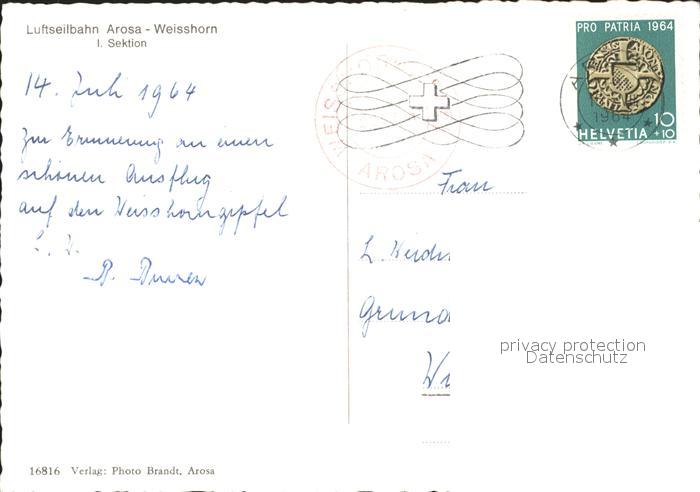 Luftseilbahn Arosa - Weisshorn
I. Sektion
14. Juli 1964
Zur Erinnerung an einen
schönen Ausflug
auf den Weisshorngipfel
WEISSHORN
AROSA
PRO PATRIA 1964
1964
10
HELVETIA +10
Frau
L.
privacy protection
Datenschutz
16816 Verlag: Photo Brandt, Arosa